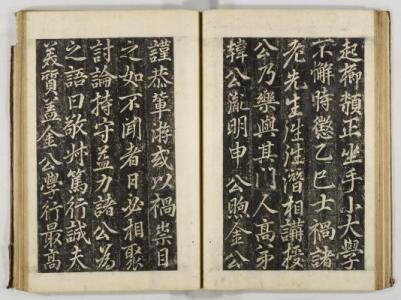 起櫛頮正坐手小大學
不懈時懲乙巳士禍諸
老先生往往潛相講授
公乃樂與其門人高弟
韓公胤明申公煦金公
謹恭輩游或以禍祟目
之如不聞者日必相聚
討論持守益力諸公爲
之語曰敬村篤行誠夫
美質蓋金公學行最高